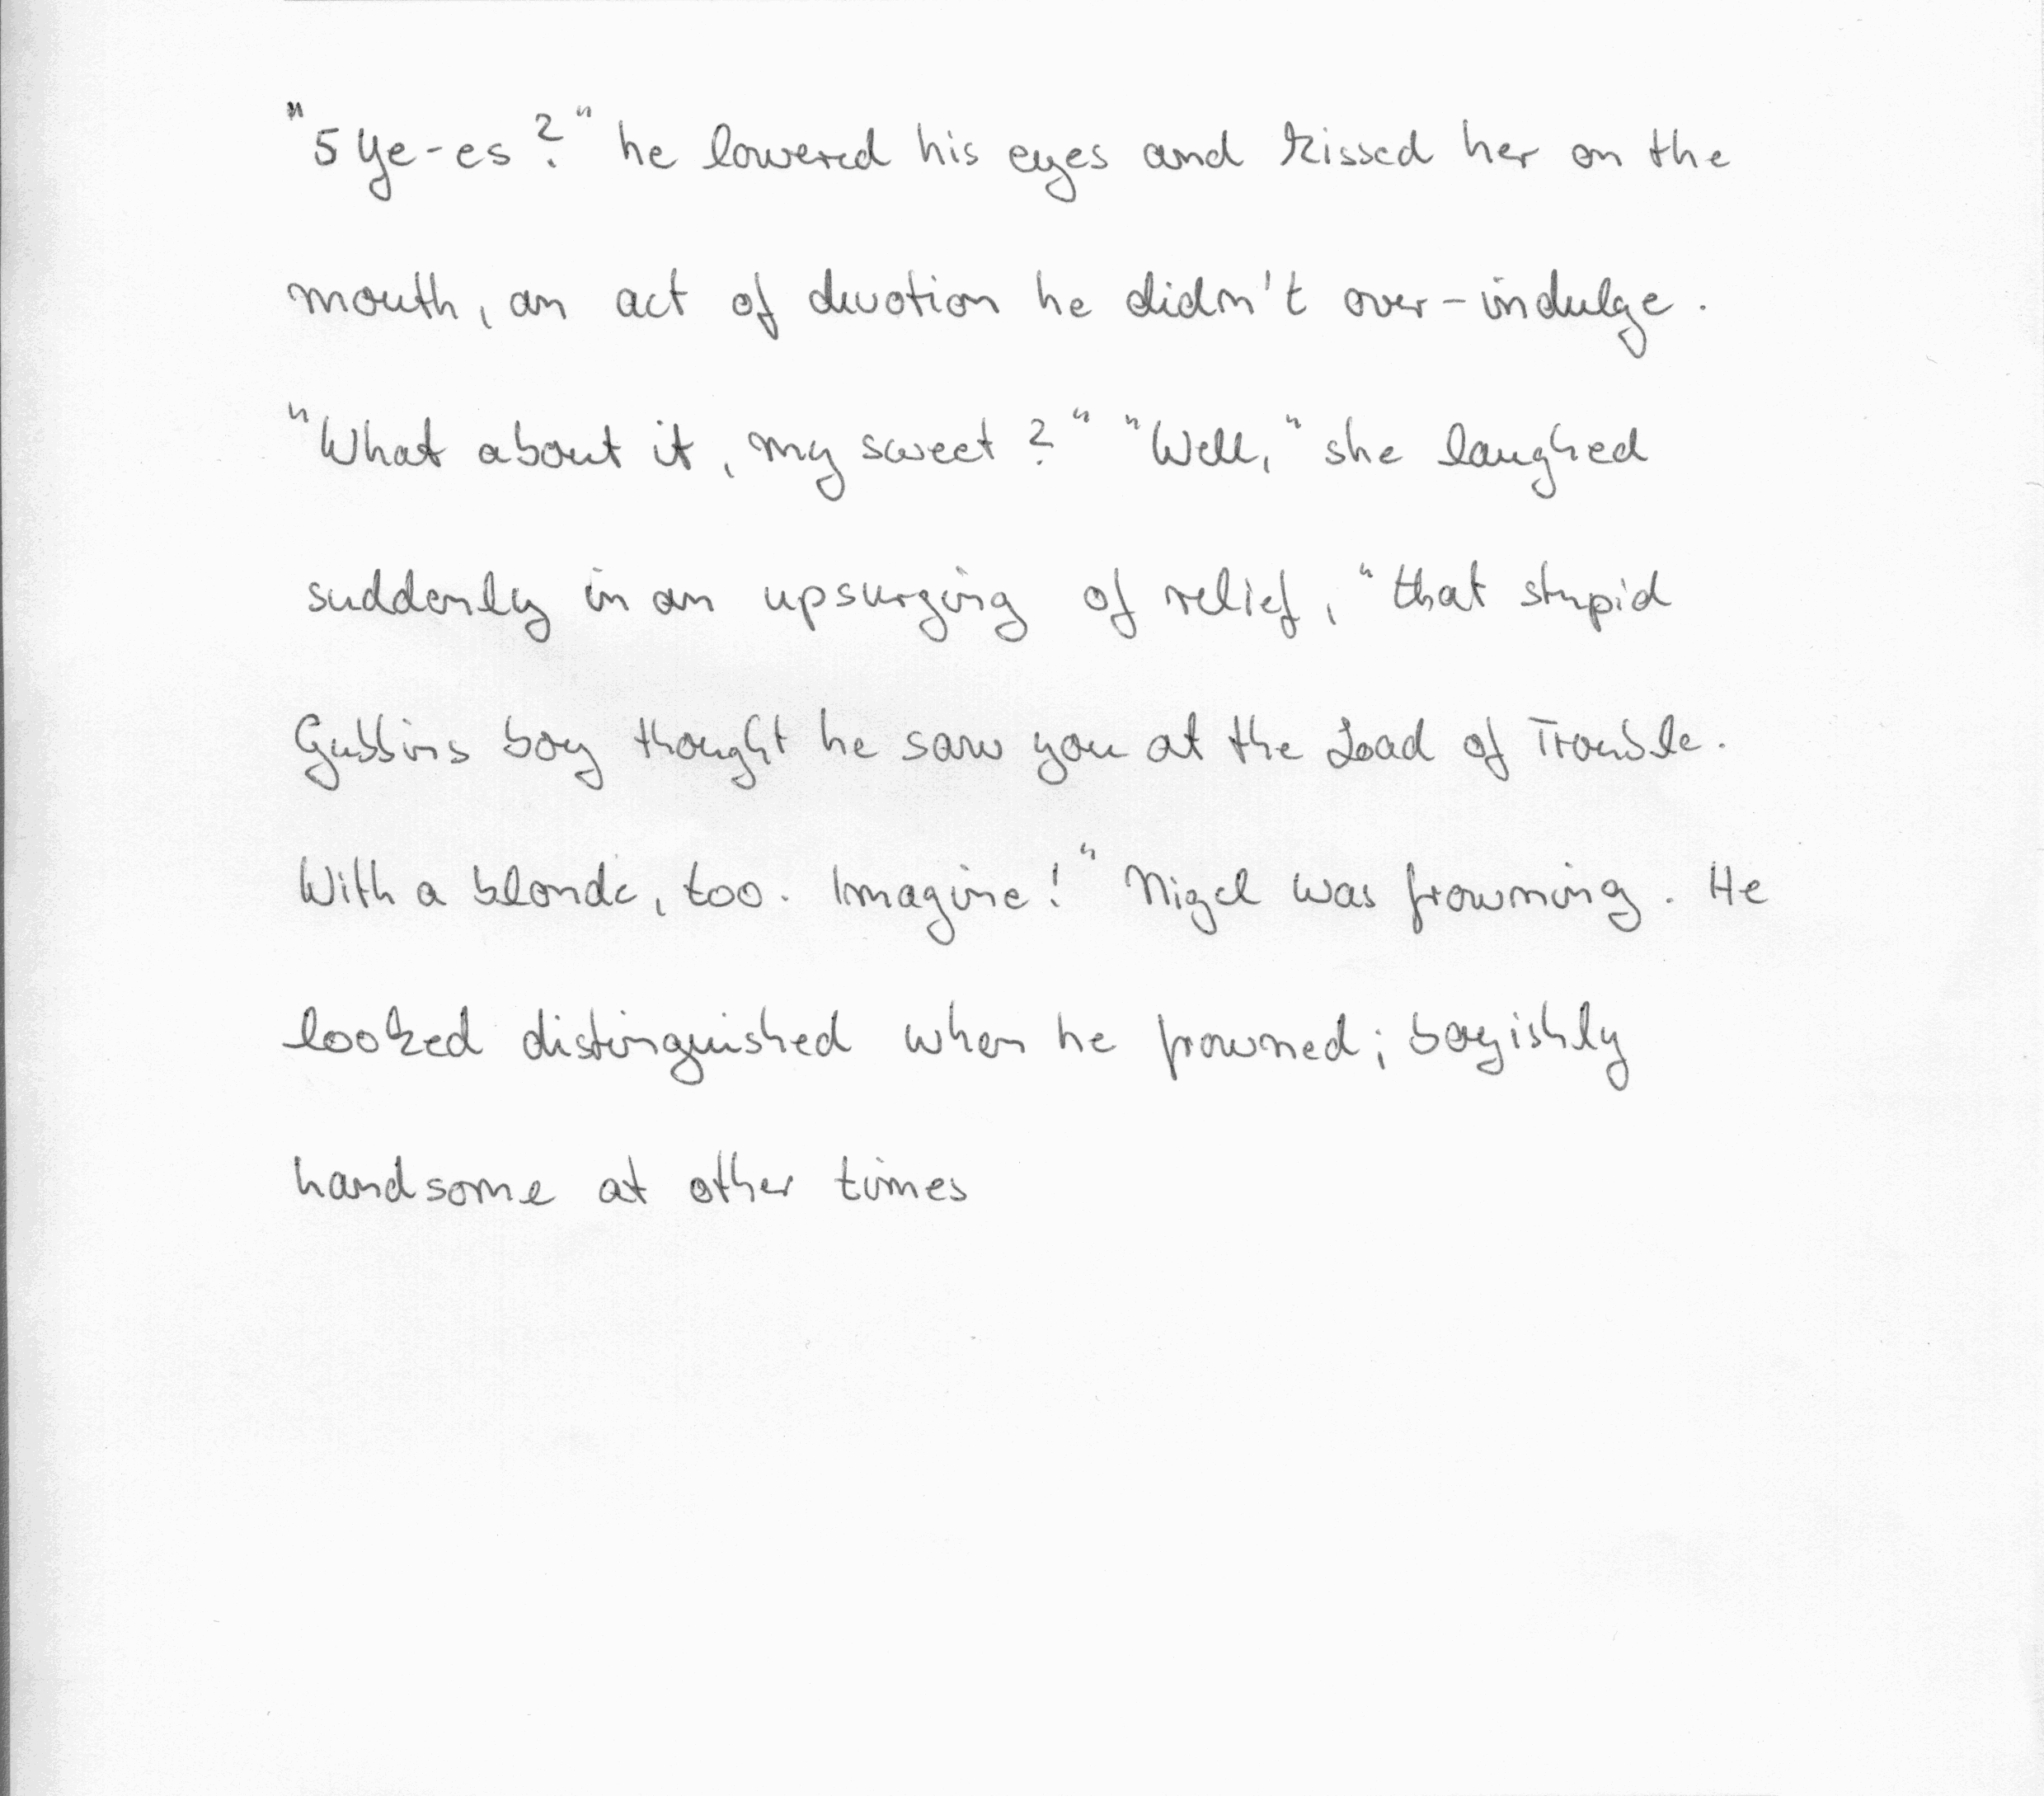 "5 Ye-es?" he lowered his eyes and kissed her on the
mouth, an act of devotion he didn't over-indulge.
"What about it, my sweet?" "Well," she laughed
suddenly in an upsurging of relief, "that stupid
Gubbins boy thought he saw you at the Load of Trouble.
With a blonde, too. Imagine!" Nigel was frowning. He
looked distinguished when he frowned; boyishly
handsome at other times